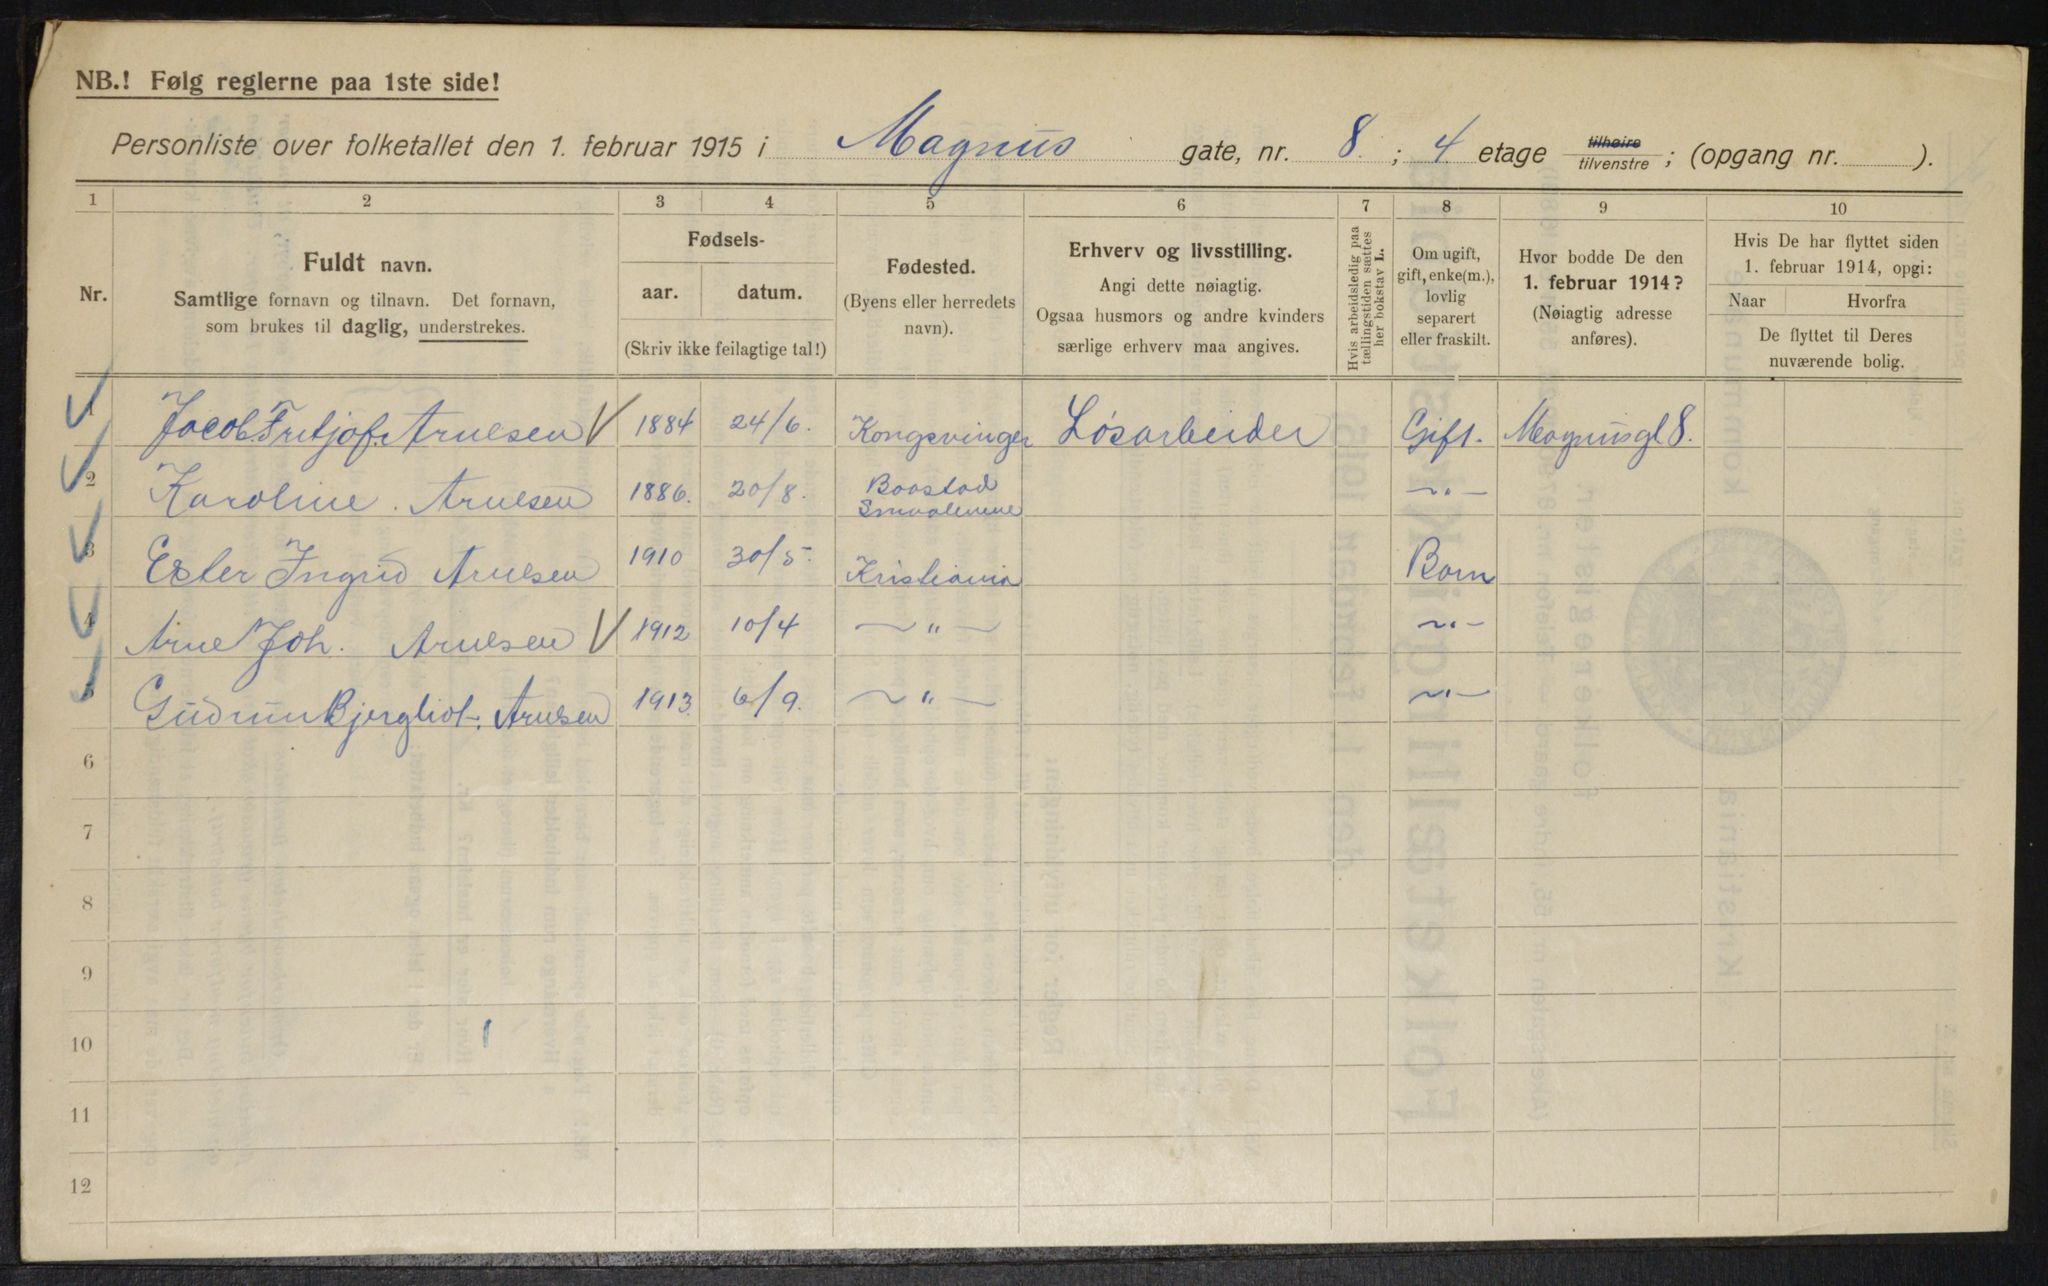 NB.! Følg reglerne paa 1ste side!
Personliste over folketallet den 1. februar 1915 i Magnus gate, nr. 8. ; 4 etage tilhøire tilvenstre ; (opgang nr. ).
1 2 3 4 5 6 7 8 9 10
Nr.
Fuldt navn.
Samtlige fornavn og tilnavn. Det fornavn,
som brukes til daglig, understrekes.
Fødsels-
aar. datum.
(Skriv ikke feilagtige tal!)
Fødested.
(Byens eller herredets
navn).
Erhverv og livsstilling.
Angi dette nøiagtig.
Ogsaa husmors og andre kvinders
særlige erhverv maa angives.
Hvis arbeidsledig paa
tællingstiden sættes
her bokstav L.
Om ugift,
gift, enke(m.),
lovlig
separert
eller fraskilt.
Hvor bodde De den
1. februar 1914?
(Nøiagtig adresse
anføres).
Hvis De har flyttet siden
1. februar 1914, opgi:
Naar Hvorfra
De flyttet til Deres
nuværende bolig.
1 Jacob Fritjof. Arnesen V 1884 24/6. Kongsvinger Løsarbeider Gift. Magnusgt 8.
2 Karoline. Arnesen 1886. 20/8. Smaalenene —"—
3 Ester Ingrid Arnesen 1910 30/5. Kristiania Barn
4 Arne Joh. Arnesen V 1912 10/4 —"— —"—
5 Gudrun Bjergliot. Arnesen 1913. 6/9. —"— —"—
6
7
8
9
10
11
12